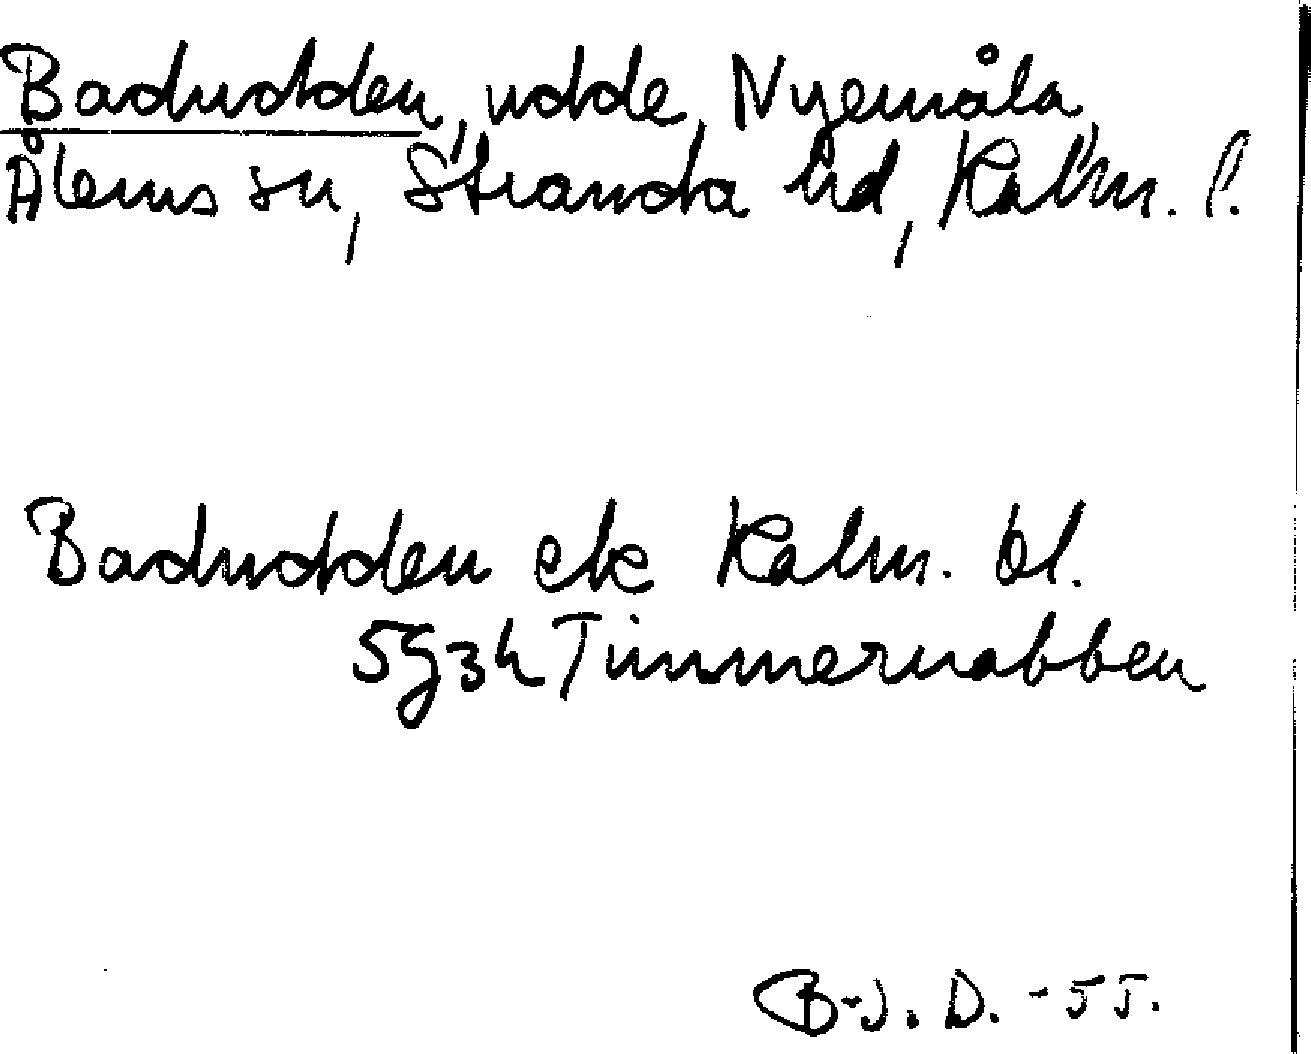 Badudden, udde, Nyemåla,
Ålems sn, Stranda hd, Kalm. l.
Badudden ek Kalm. bl.
5g3h Timmernabben
B-J. D. -55.